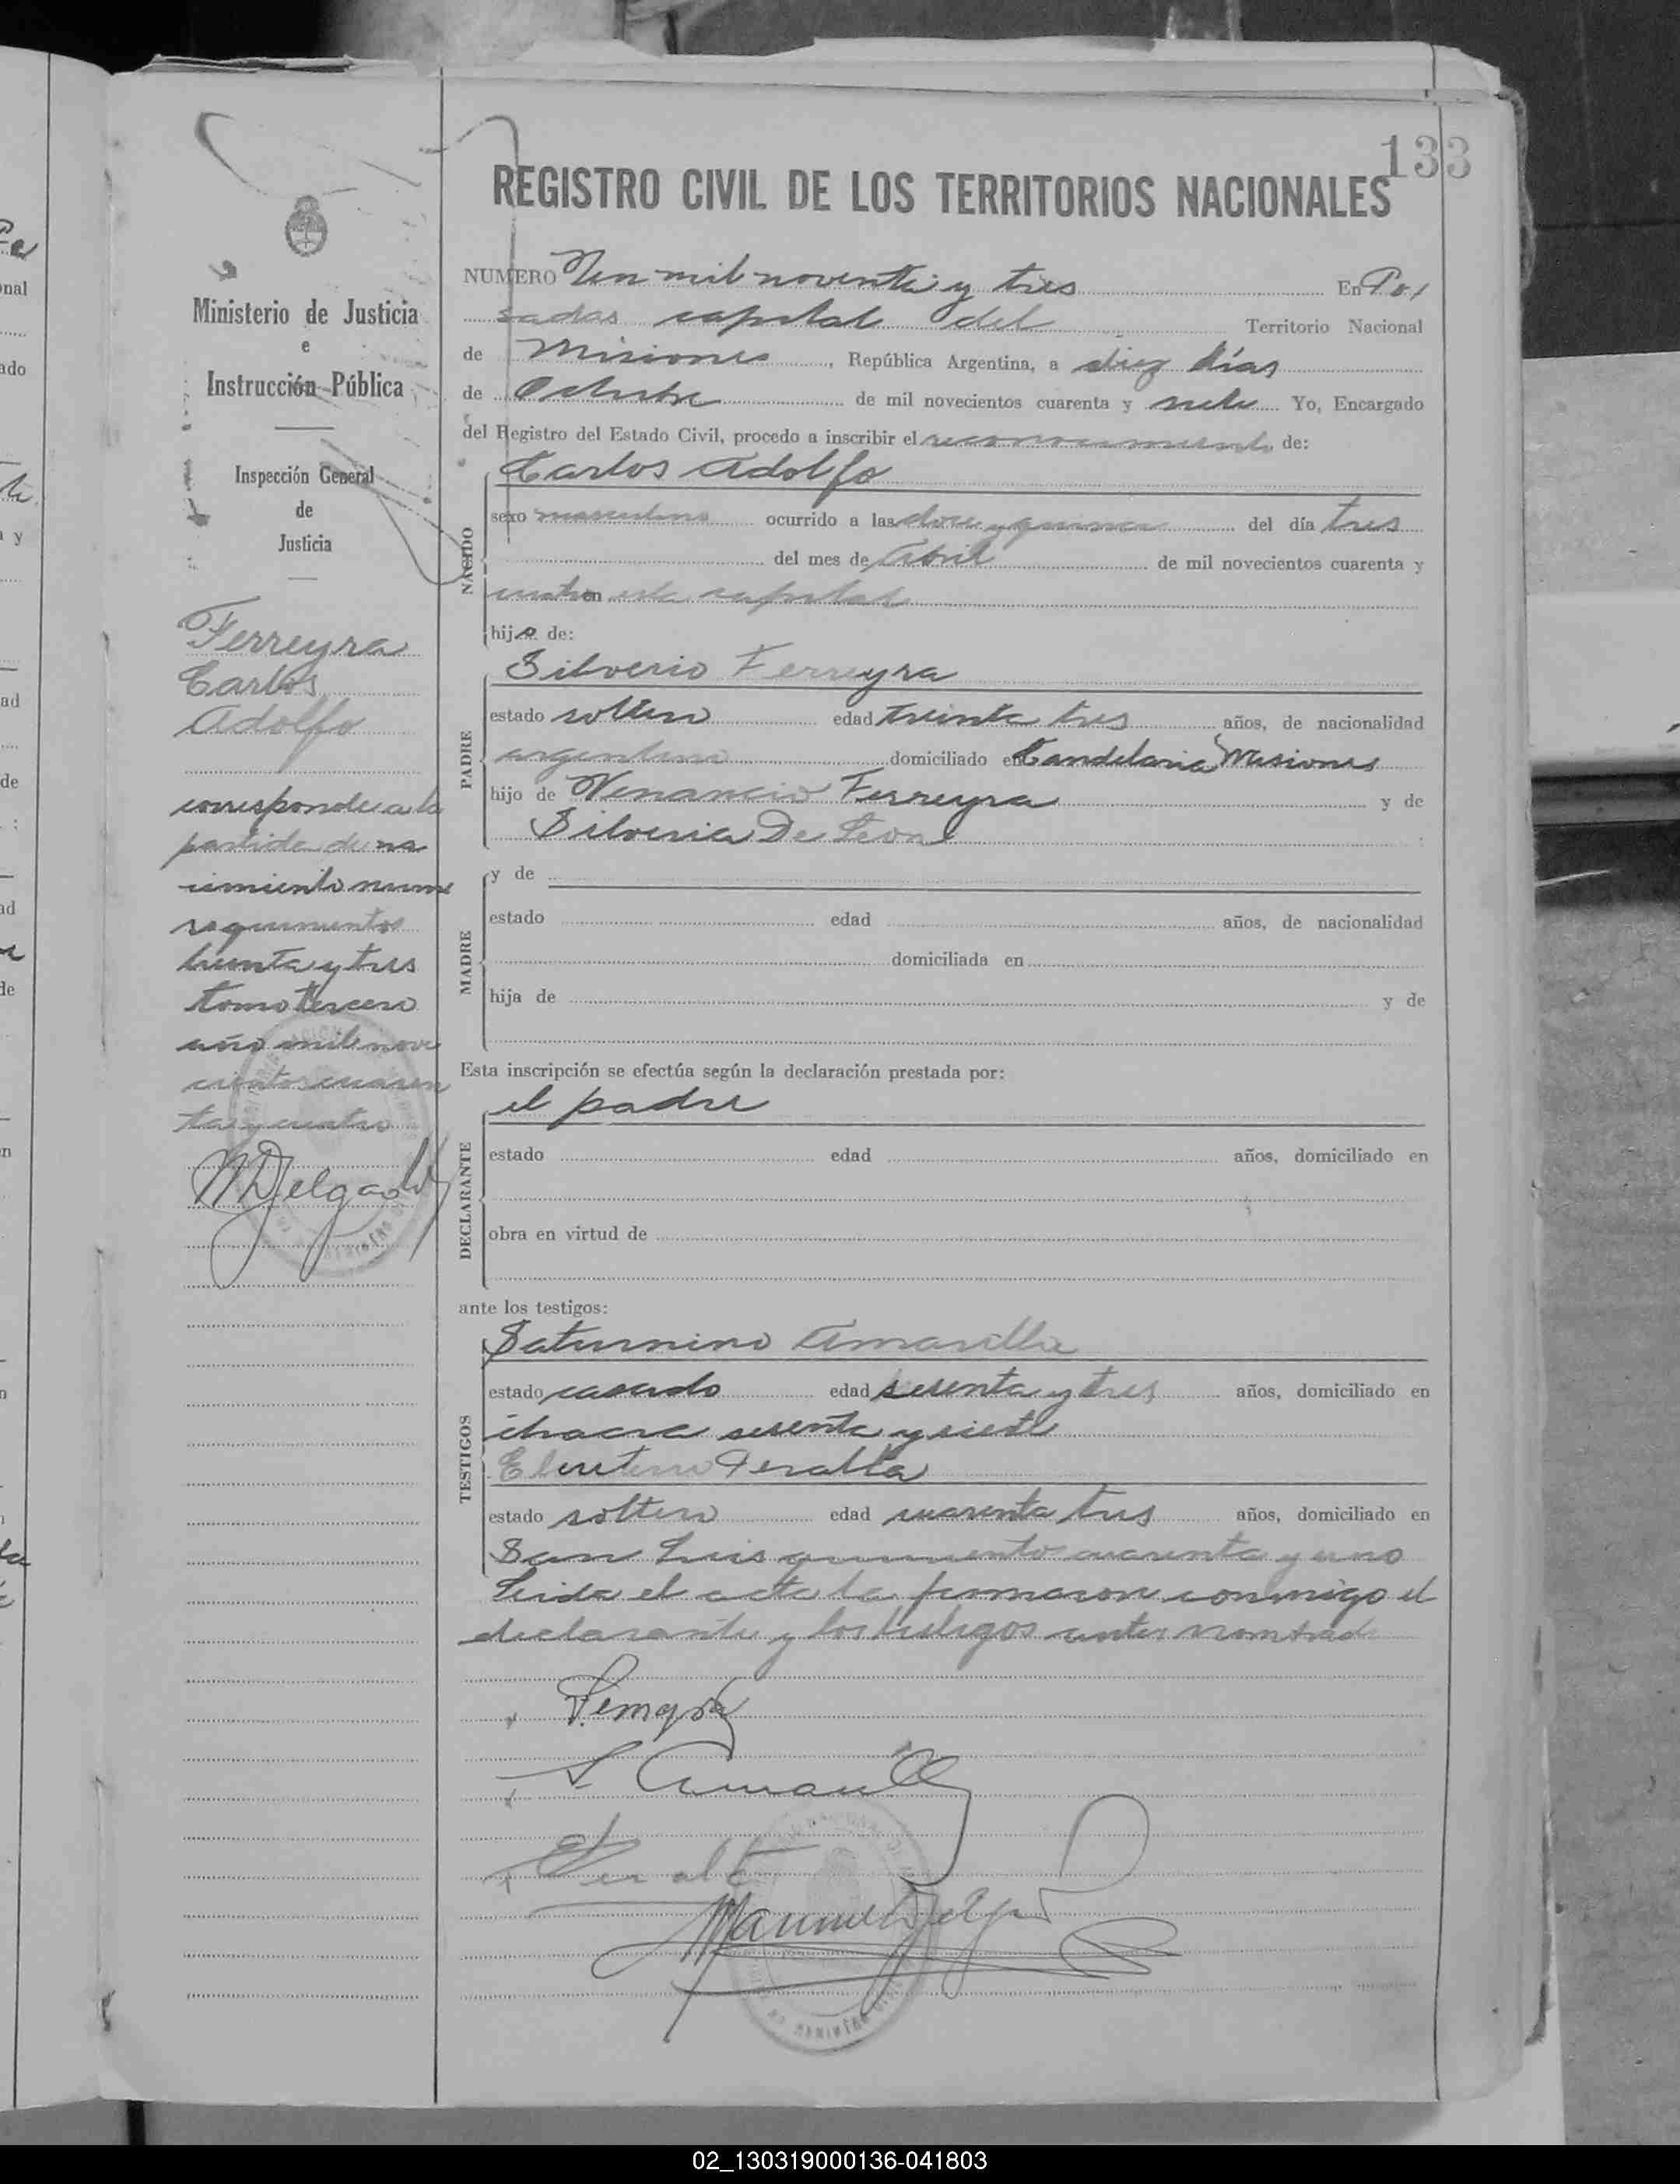 133
REGISTRO CIVIL DE LOS TERRITORIOS NACIONALES
Ministerio de Justicia
e
Instrucción Pública
Inspección General
de
Justicia
Ferreyra
Carlos
Adolfo
corresponde a la
partida de na
cimiento nume
ro quinientos
treinta y tres
tomo tercero
año mil nove
cientos cuaren
ta y cuatro
MDelgado
NUMERO Un mil noventa y tres En Po/
sadas capital del Territorio Nacional
de Misiones, República Argentina, a diez días
de Octubre de mil novecientos cuarenta y siete Yo, Encargado
del Registro del Estado Civil, procedo a inscribir el reconocimiento de:
NACIDO
Carlos Adolfo
sexo masculino ocurrido a las doce y quince del día tres
del mes de Abril de mil novecientos cuarenta y
cuatro en esta capital
hijo de:
PADRE
Silverio Ferreyra
estado soltero edad treinta tres años, de nacionalidad
argentina domiciliado en Candelaria Misiones
hijo de Venancio Ferreyra y de
Silveria De Leon
MADRE
y de
estado edad años, de nacionalidad
domiciliada en
hija de y de
Esta inscripción se efectúa según la declaración prestada por:
DECLARANTE
el padre
estado edad años, domiciliado en
obra en virtud de
ante los testigos:
TESTIGOS
Saturnino Amarilla
estado casado edad sesenta y tres años, domiciliado en
chacra sesenta y siete
Eleuterio Peralta
estado soltero edad cuarenta tres años, domiciliado en
San Luis quinientos cuarenta y uno
Leida el acta la firmaron conmigo el
declarante y los testigos antes nombrad
S. Amarilla
Peralta
Manuel Delgado
02_130319000136-041803